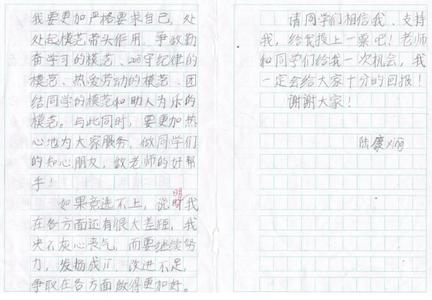 我要更加严格要求自己，处
处起模范带头作用，争取勤
奋学习的模范、遵守纪律的
模范、热爱劳动的模范、团
结同学的模范和助人为乐的
模范。与此同时，要更加热
心地为大家服务，做同学们
的知心朋友，做老师的好帮
手！
如果竞选不上，说明我
在各方面还有很大差距，我
决不灰心丧气，而要继续努
力，发扬成绩，改进不足，
争取在各方面做得更加好。
请同学们相信我、支持
我，给我投上一票吧！老师
和同学们给我一次机会，我
一定会给大家十分的回报！
谢谢大家！
陆康